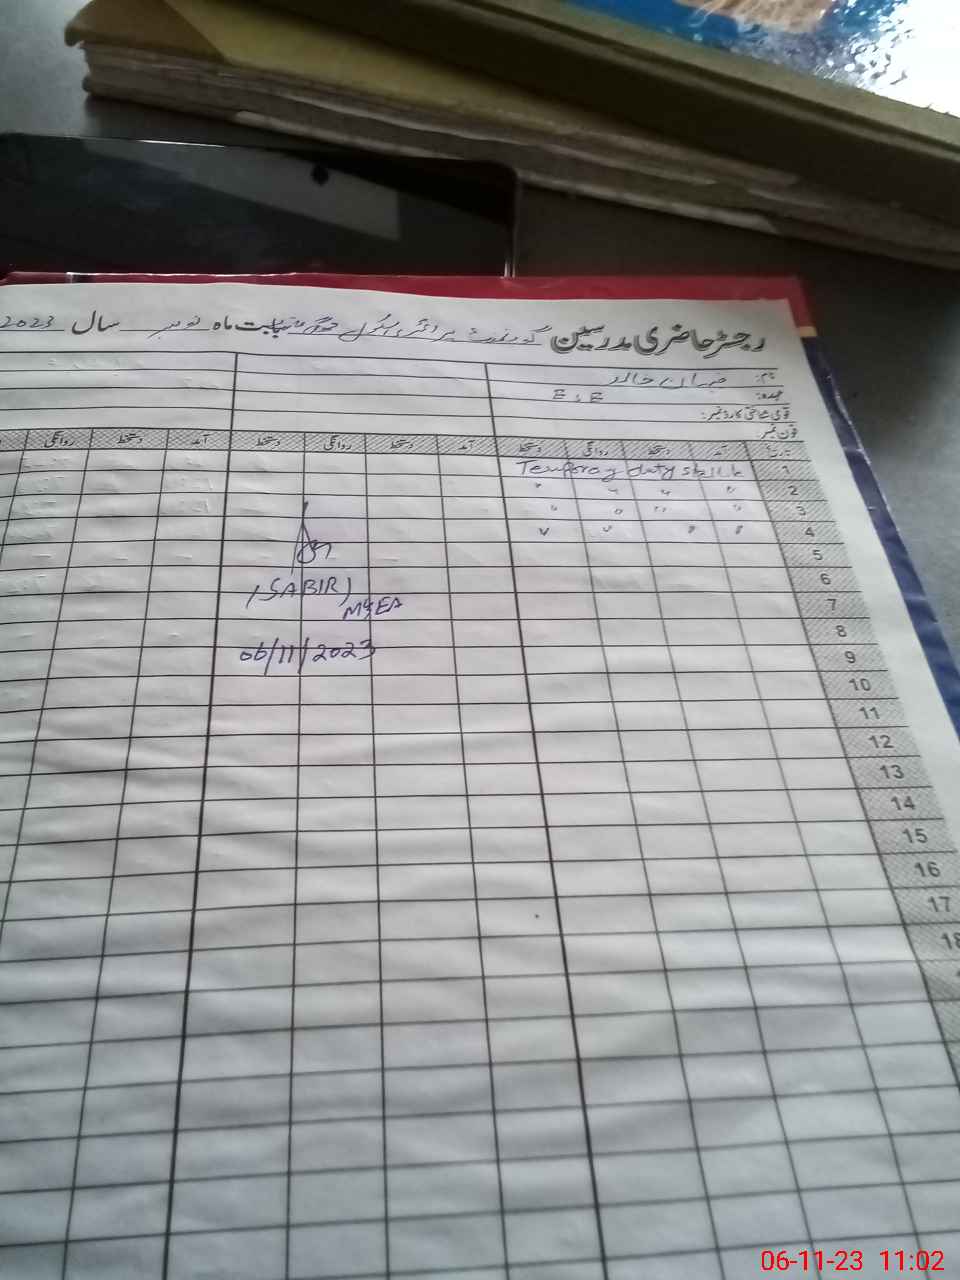 رجسٹر حاضری مدرسین گورنمنٹ پرائمری سکول بابت ماہ نومبر سال 2023
نام:
عہدہ: E S E
قومی شناختی کارڈ نمبر:
فون نمبر:
تاریخ آمد دستخط روانگی دستخط آمد دستخط روانگی دستخط آمد دستخط روانگی
1 Temporay duty
2 " " " "
3 " " " "
4 " " " "
5
6
7
8
9
10
11
12
13
14
15
16
17
18
(SABIR)
M&EA
06/11/2023
06-11-23 11:02